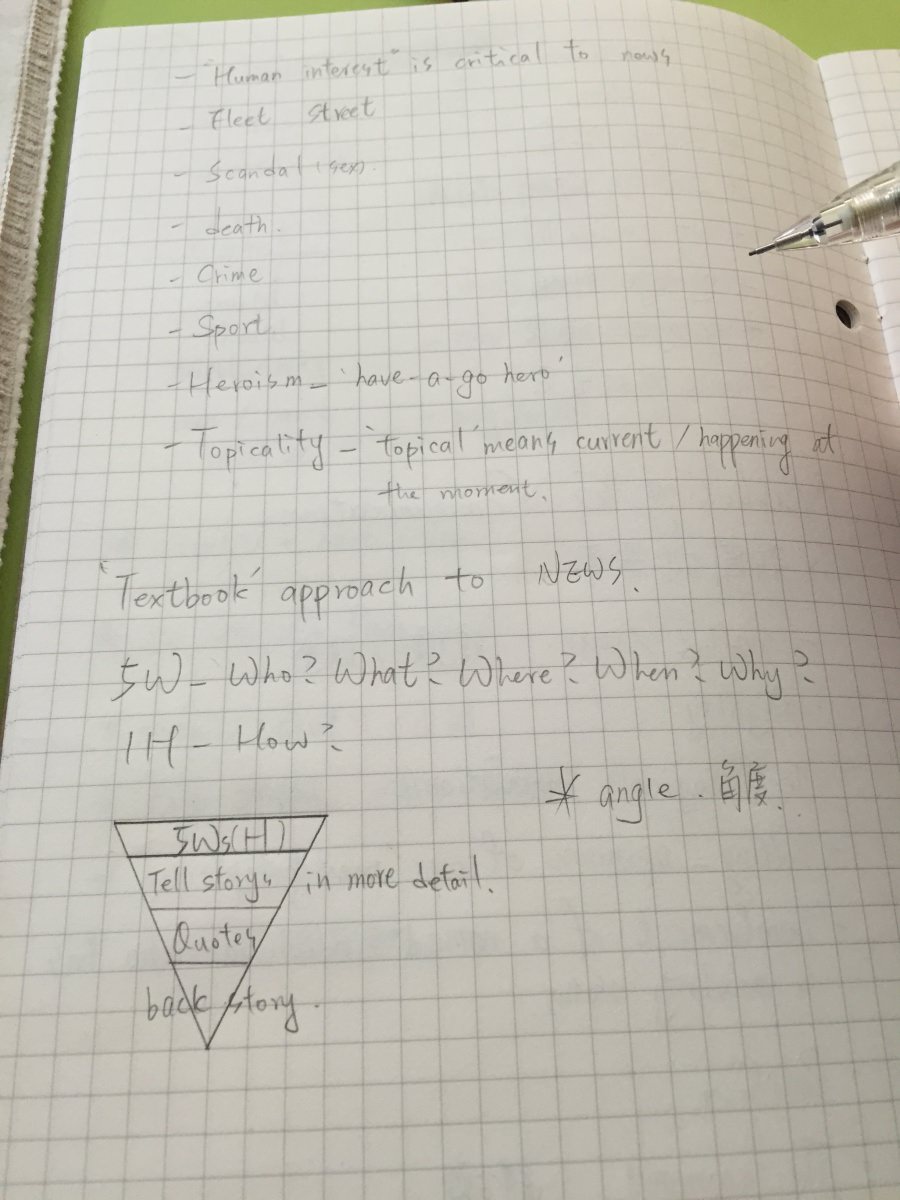 - "Human interest" is critical to news
- Fleet Street
- Scandal (sex).
- death.
- Crime
- Sport
- Heroism - 'have-a-go hero'
- Topicality - 'topical' means current / happening at
the moment.
'Textbook' approach to NEWS.
5W - Who? What? Where? When? Why?
1H - How?
* angle. 角度.
5Ws(H)
Tell storys in more detail.
Quotes
back story.